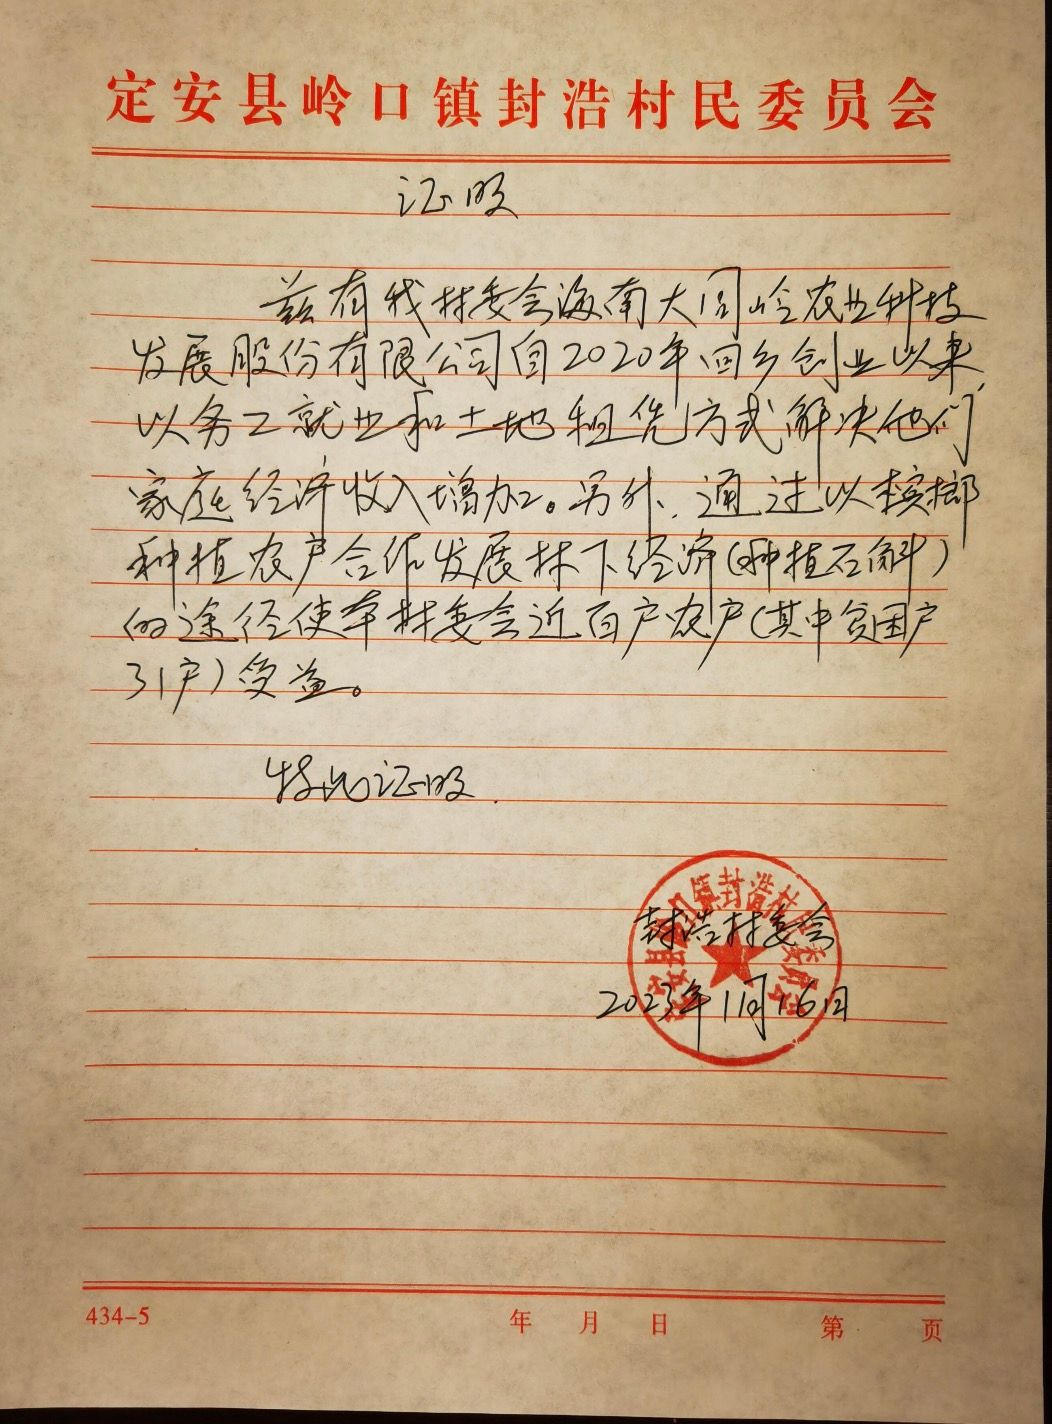 定安县岭口镇封浩村民委员会
证明
兹有我村委会海南大同岭农业科技
发展股份有限公司自2020年回乡创业以来,
以务工就业和土地租凭方式解决他们
家庭经济收入增加。另外,通过以槟榔
种植农户合作发展林下经济(种植石斛)
的途径使本村委会近百户农户(其中贫困户
31户)受益。
特此证明.
定安县岭口镇封浩村民委员会
封浩村委会
2023年11月16日
434-5 年 月 日 第 页